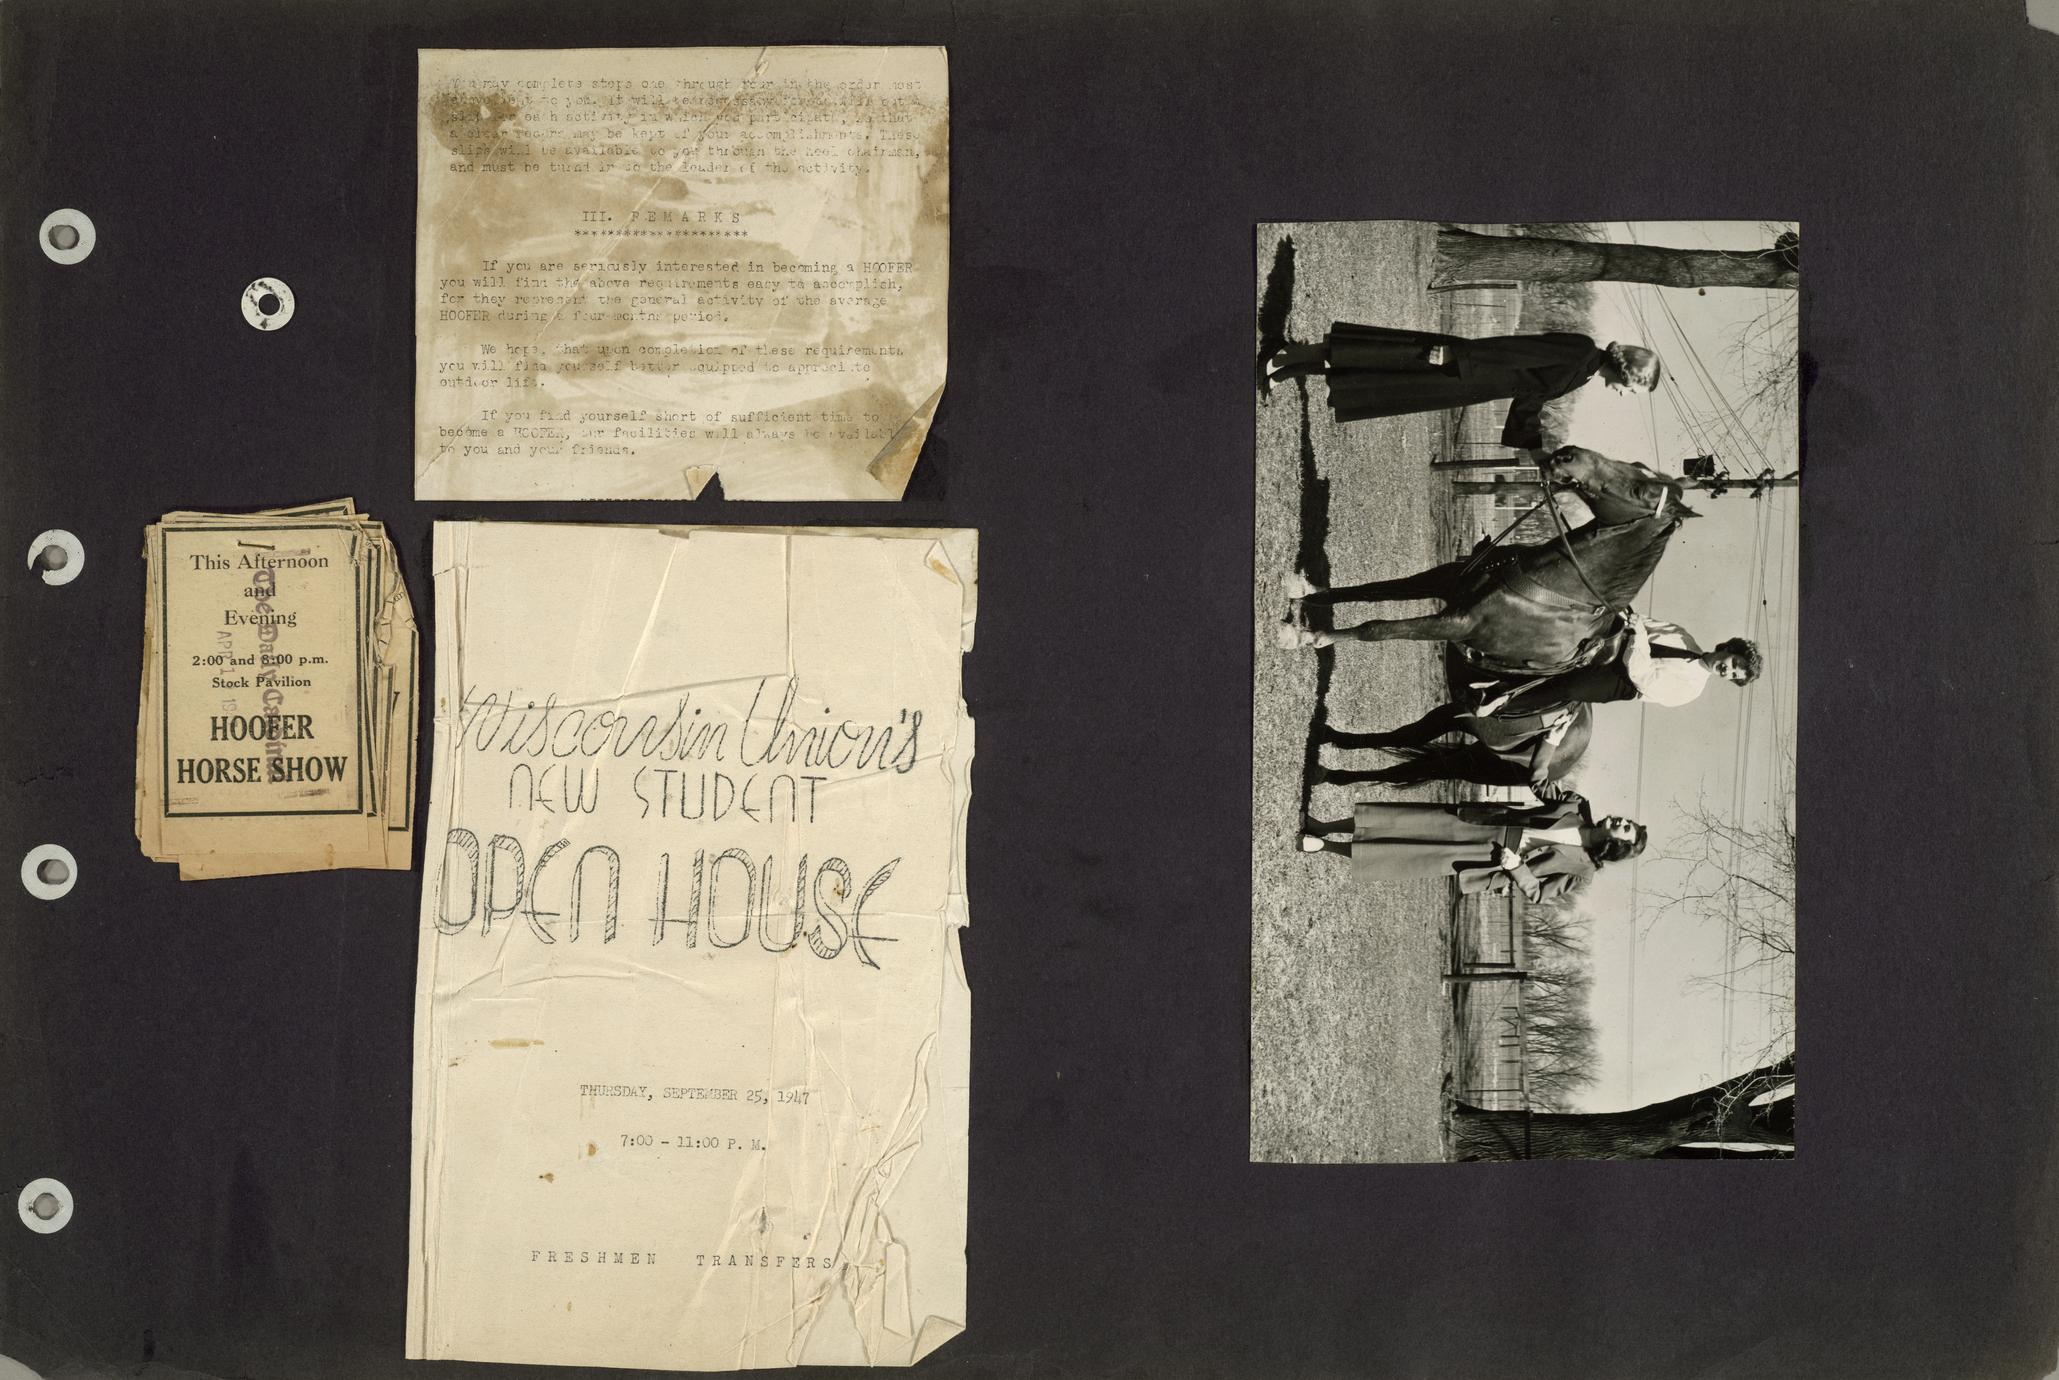 You may complete steps one through four in the order most
convenient to you. It will be necessary for you to fill out a
slip for each activity in which you participate, so that
a clear record may be kept of your accomplishments. These
slips will be available to you through the heel chairman,
and must be turned in to the leader of the activity.
III. REMARKS
*********************
If you are seriously interested in becoming a HOOFER
you will find the above requirements easy to accomplish,
for they represent the general activity of the average
HOOFER during a four months period.
We hope, that upon completion of these requirements
you will find yourself better equipped to appreciate
outdoor life.
If you find yourself short of sufficient time to
become a HOOFER, our facilities will always be available
to you and your friends.
This Afternoon
and
Evening
2:00 and 8:00 p.m.
Stock Pavilion
HOOFER
HORSE SHOW
The Daily Cardinal
APR 1 19
Wisconsin Union's
NEW STUDENT
OPEN HOUSE
THURSDAY, SEPTEMBER 25, 1947
7:00 - 11:00 P. M.
FRESHMEN TRANSFERS